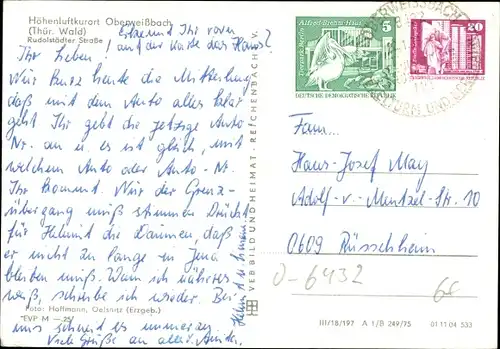 Höhenluftkurort Oberweißbach
(Thür. Wald)
Rudolstädter Straße
Erkennt Ihr vorn
auf der Karte das Haus?
Ihr Lieben!
Wir kurz heute die Mitteilung
daß mit dem Auto alles klar
geht Ihr gebt die jetzige Auto
Nr. an u. es ist gleich, mit
welchem Auto oder Auto-Nr.
Ihr kommt. Nur der Grenz-
übergang muß stimmen Drückt
für Helmut die Daumen, daß
er nicht zu lange in Jena
bleiben muß. Wenn ich näheres
weiß, schreibe ich wieder. Bei
uns schneit es immerzu
Viele Grüße an alle
Helmut u.
Foto: Hoffmann, Oelsnitz (Erzgeb.)
EVP M —,25
VEB BILD UND HEIMAT · REICHENBACH I. V.
Alfred-Brehm-Haus
Tierpark Berlin
5
DEUTSCHE DEMOKRATISCHE REPUBLIK
20
OBERWEISSBACH
Fam.
Hans-Josef May
Adolf-v.-Menzel-Str. 10
6090 Rüsselsheim
0-6432
III/18/197 A 1/B 249/75 01 11 04 533